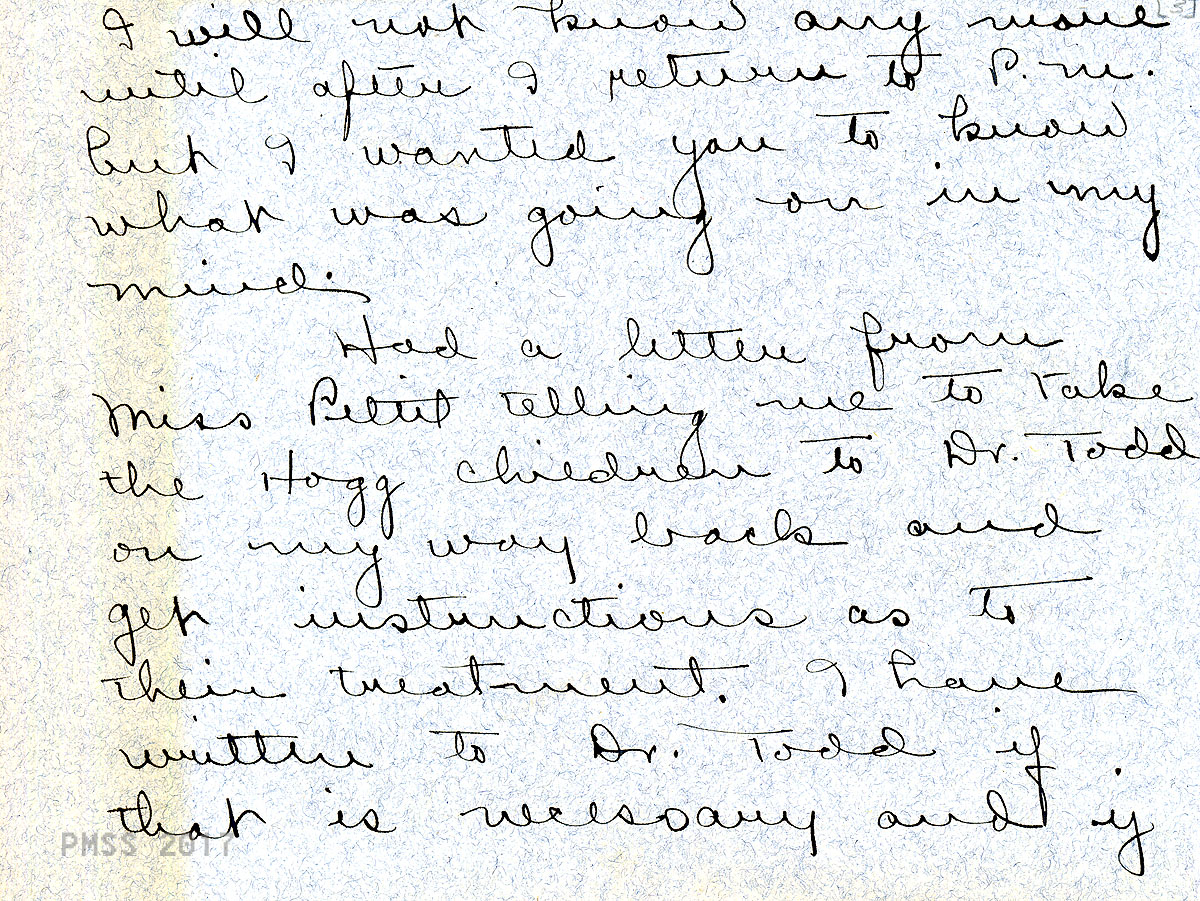 [3]
I will not know any more
until after I return to P.M.
but I wanted you to know
what was going on in my
mind.
Had a letter from
Miss Pettit telling me to take
the Hogg children to Dr. Todd
on my way back and
get instructions as to
their treatment. I have
written to Dr. Todd if
that is necessary and if
PMSS 2017